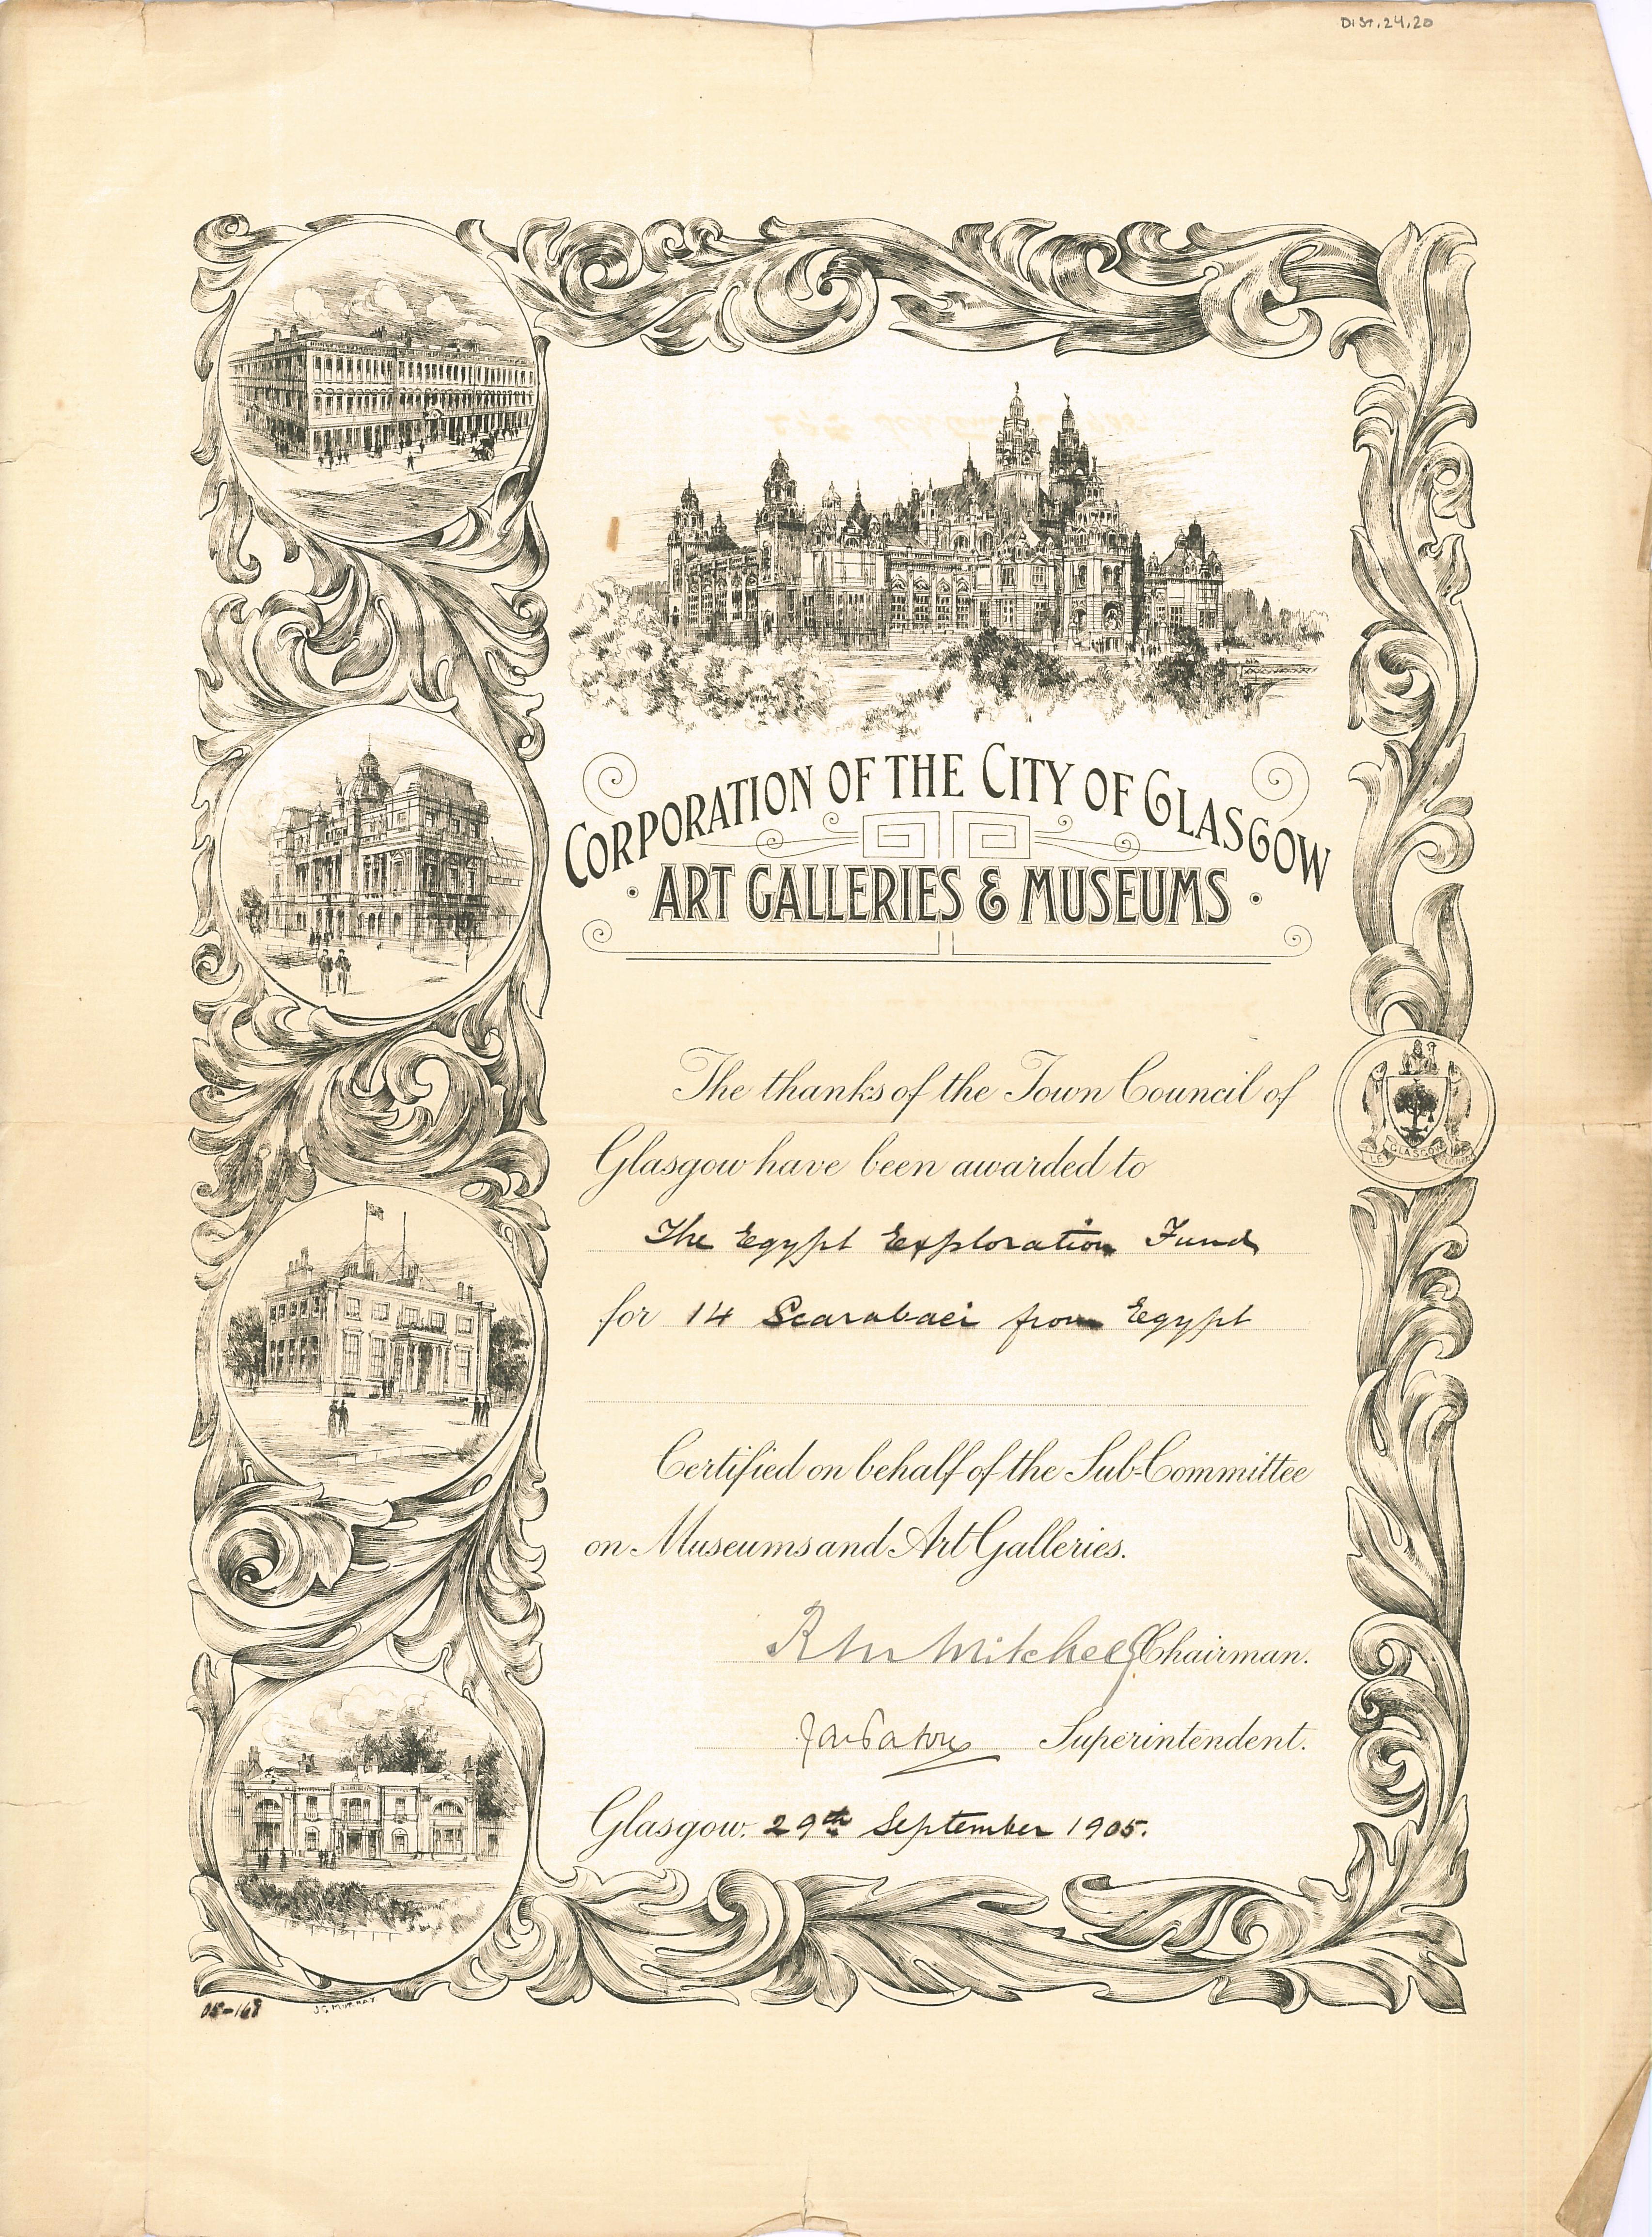 DIST.24.20
CORPORATION OF THE CITY OF GLASGOW
· ART GALLERIES & MUSEUMS ·
The thanks of the Town Council of
Glasgow have been awarded to
The Egypt Exploration Fund
for 14 Scarabaei from Egypt
GLASGOW
Certified on behalf of the Sub-Committee
on Museums and Art Galleries.
Mitchell Chairman.
Paton Superintendent.
Glasgow. 29th September 1905.
05-168
J.G. MURRAY